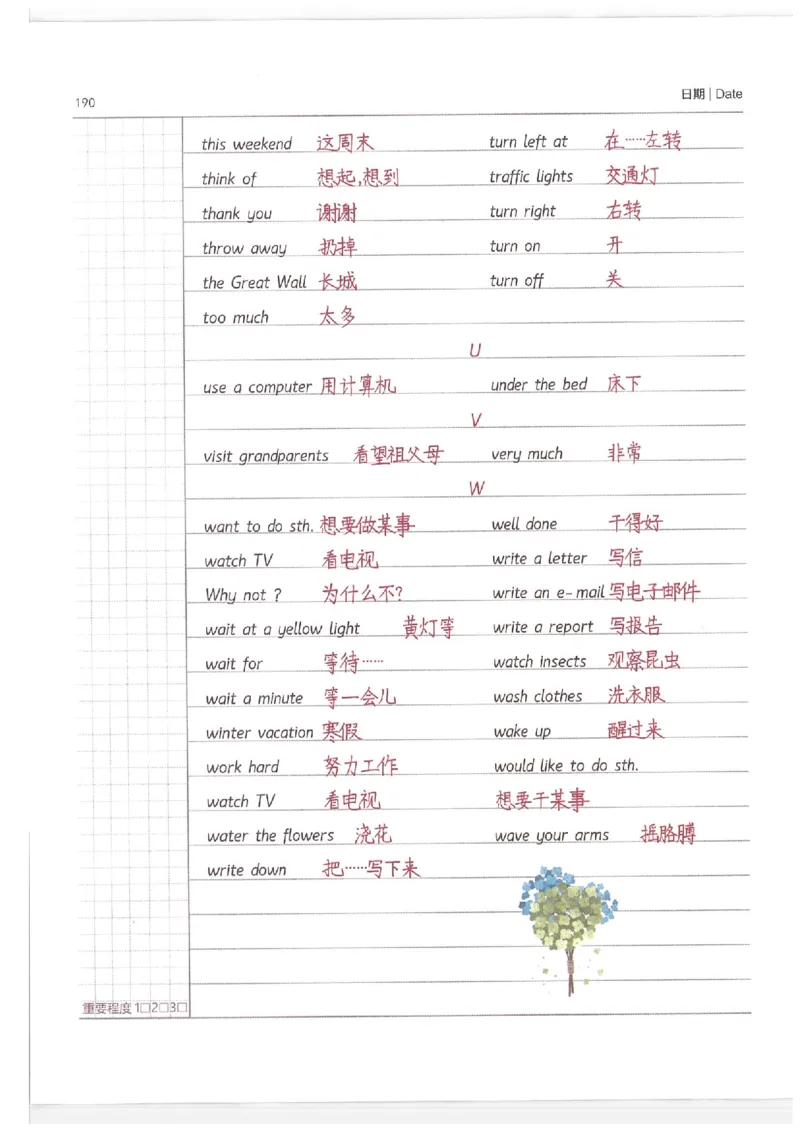 190
日期 | Date
this weekend 这周末 turn left at 在……左转
think of 想起,想到 traffic lights 交通灯
thank you 谢谢 turn right 右转
throw away 扔掉 turn on 开
the Great Wall 长城 turn off 关
too much 太多
U
use a computer 用计算机 under the bed 床下
V
visit grandparents 看望祖父母 very much 非常
W
want to do sth. 想要做某事 well done 干得好
watch TV 看电视 write a letter 写信
Why not ? 为什么不? write an e-mail 写电子邮件
wait at a yellow light 黄灯等 write a report 写报告
wait for 等待…… watch insects 观察昆虫
wait a minute 等一会儿 wash clothes 洗衣服
winter vacation 寒假 wake up 醒过来
work hard 努力工作 would like to do sth.
watch TV 看电视 想要干某事
water the flowers 浇花 wave your arms 摇胳膊
write down 把……写下来
重要程度 1□2□3□